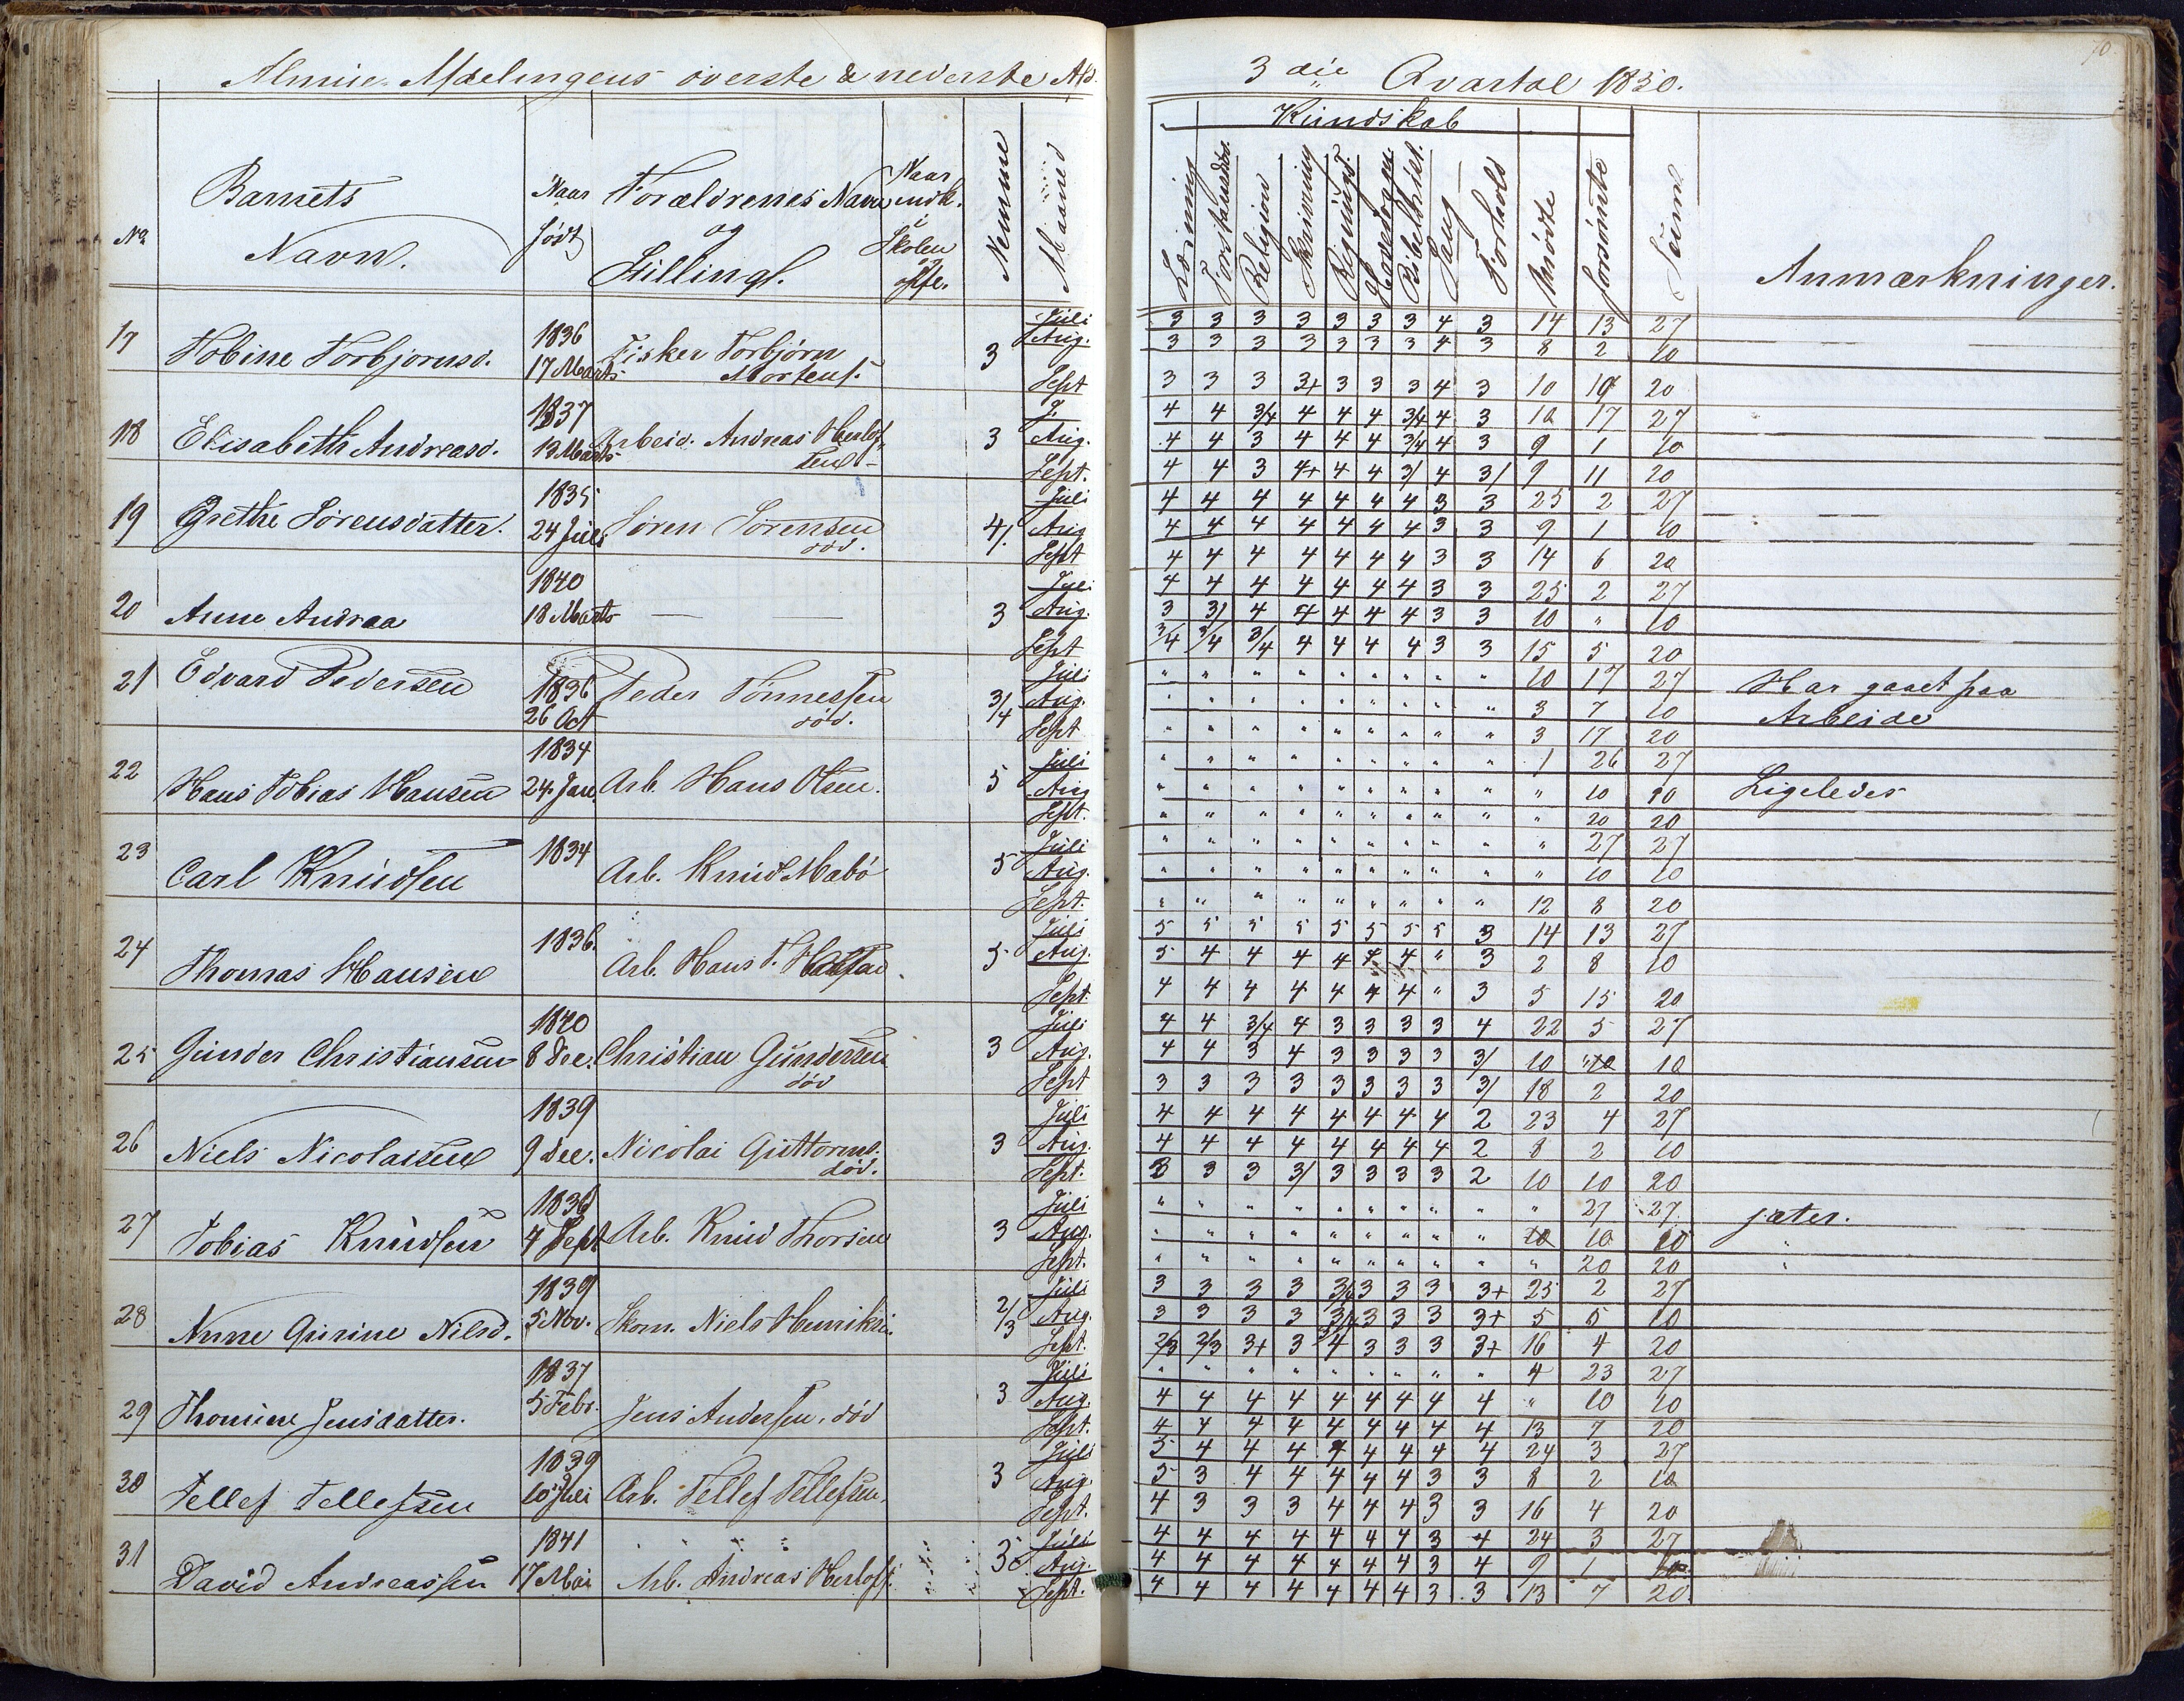 Almue-Afdelingens øverste & nederste Afd.
3die Qvartal 1850.
70.
Kundskab
No
Barnets Navn.
Naar født
Forældrenes Navn og Stilling.
Naar indk. i Skolen
Nemme
Maaned
Læsning
Forstandsøv.
Religion
Skrivning
Regning
Bibelhist.
Sang
Forhold
mødte
forsømte
Sum
Anmærkninger.
17 Tobine Torbjørnsd. 1836 17 Marts Fisker Torbjørn Mortens. 3
Juli 3 3 3 3 3 3 3 4 3 14 13 27
Aug. 3 3 3 3 3 3 3 4 3 8 2 10
Sept 3 3 3 3+ 3 3 3 4 3 10 10 20
18 Elisabeth Andreasd. 1837 13 Marts Arbeid. Andreas Herlofsens 3
J. 4 4 3/4 4 4 4 3/4 4 3 10 17 27
Aug. 4 4 3 4 4 4 3/4 4 3 9 1 10
Sept. 4 4 3 4+ 4 4 3/ 4 3/ 9 11 20
19 Grethe Sørensdatter. 1835 24 Juli Søren Sørensen død. 4/.
Juli 4 4 4 4 4 4 4 3 3 25 2 27
Aug 4 4 4 4 4 4 4 3 3 9 1 10
Sept 4 4 4 4 4 4 4 3 3 14 6 20
20 Anne Andraa 1840 18 Marts — — 3
Juli 4 4 4 4 4 4 4 3 3 25 2 27
Aug. 3 3/ 4 4 4 4 4 3 3 10 " 10
Sept 3/4 3/4 3/4 4 4 4 4 3 3 15 5 20
21 Edvard Pedersen 1836 26 Oct Peder Tønnessen død. 3/4
Juli " " " " " " " " " 10 17 27 Har gaaet paa
Aug. " " " " " " " " " 3 7 10 Arbeide
Sept " " " " " " " " " 3 17 20
22 Hans Tobias Hansen 1834 24. Jan. Arb. Hans Olsen. 5
Juli " " " " " " " " " 1 26 27
Aug " " " " " " " " " " 10 10 Ligeledes
Sept. " " " " " " " " " " 20 20
23 Carl Knudsen 1834 Arb. Knud Mabø 5
Juli " " " " " " " " " " 27 27
Aug. " " " " " " " " " " 10 10
Sept. " " " " " " " " " 12 8 20
24 Thomas Hansen 1836. Arb. Hans T. 5
Juli 5 5 5 5 5 5 5 5 3 14 13 27
Aug. 5 4 4 4 4 4 4 " 3 2 8 10
Sept. 4 4 4 4 4 4 4 " 3 5 15 20
25 Gunder Christiansen 1840 8 Dec. Christian Gundersen død 3
Juli 4 4 3/4 4 3 3 3 3 4 22 5 27
Aug. 4 4 3 4 3 3 3 3 3/ 10 " 10
Sept 3 3 3 3 3 3 3 3 3/ 18 2 20
26 Niels Nicolaisen 1839 9 Dec. Nicolai Guttorms. død. 3
Juli 4 4 4 4 4 4 4 4 2 23 4 27
Aug. 4 4 4 4 4 4 4 4 2 8 2 10
Sept. 3 3 3 3/ 3 3 3 3 2 10 10 20
27 Tobias Knudsen 1836 4 Sept Arb. Knud Thorsen 3
Juli " " " " " " " " " " 27 27 jæter.
Aug. " " " " " " " " " 10 10 "
Sept. " " " " " " " " " " 20 20 "
28 Anne Gurine Nilsd. 1839 5 Nov. Skom. Niels Henriksn. 2/3
Juli 3 3 3 3 3/ 3 3 3 3+ 25 2 27
Aug. 3 3 3 3 3/ 3 3 3 3+ 5 5 10
Sept. 2/3 2/3 3+ 3 4 3 3 3 3+ 16 4 20
29 Thomine Jensdatter. 1837 5 Febr. Jens Andersen. død 3
Juli " " " " " " " " " 4 23 27
Aug. 4 4 4 4 4 4 4 4 4 " 10 10
Sept. 4 4 4 4 4 4 4 4 4 13 7 20
30 Tellef Tellefsen 1839 10 Juli Arb. Tellef Tellefsen. 3
Juli 5 4 4 4 4 4 4 4 4 24 3 27
Aug. 5 3 4 4 4 4 4 3 3 8 2 10
Sept. 4 3 3 3 4 4 4 3 3 16 4 20
31 David Andreassen 1841 17 Mai Arb. Andreas Herlofs. 3
Juli 4 4 4 4 4 4 4 3 4 24 3 27
Aug. 4 4 4 4 4 4 4 3 4 9 1 10
Sept. 4 4 4 4 4 4 4 3 3 13 7 20.